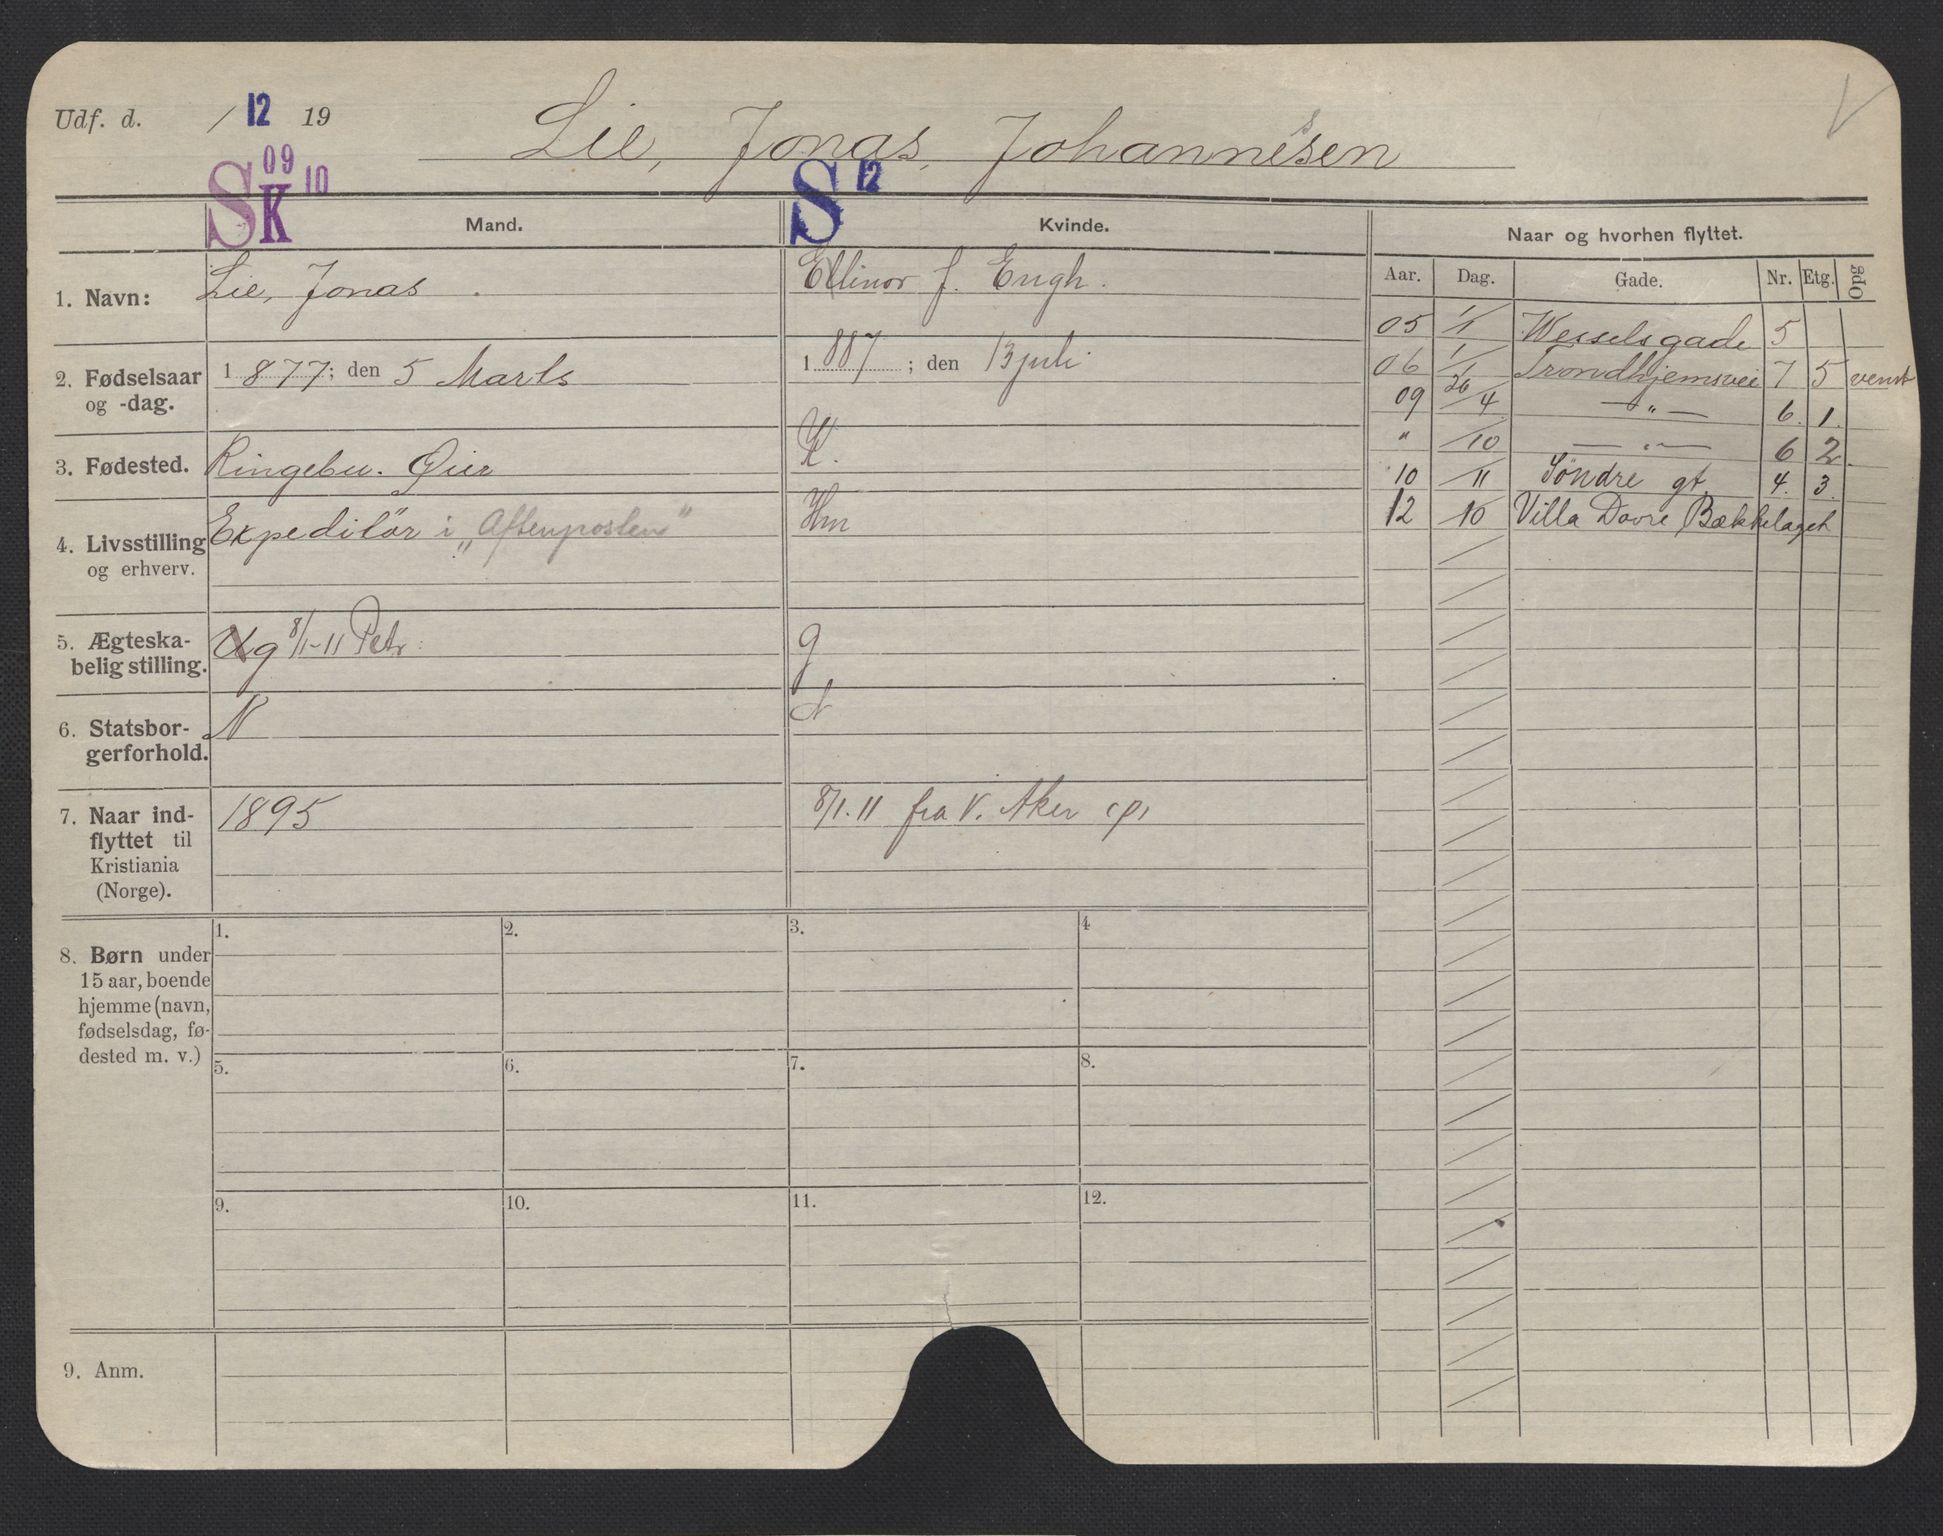 Udf. d. / 12 19
Lie, Jonas, Johannesen
S K 09 10
S 12
Mand.
Kvinde.
Naar og hvorhen flyttet.
Aar. Dag. Gade. Nr. Etg. Opg
1. Navn: Lie, Jonas. Ellinor f. Engh.
2. Fødselsaar og -dag. 1877; den 5 Marts 1887; den 13 juli
3. Fødested. Ringebu. Øier K.
4. Livsstilling og erhverv. Expeditör i „Aftenposten" Hm
5. Ægteska-
belig stilling. Ug 8/1-11 Petr. g
6. Statsbor-
gerforhold. N N
7. Naar ind-
flyttet til
Kristiania
(Norge). 1895 8/1.11 fra V. Aker
05 1/1 Wesselsgade 5
06 1/1 Trondhjemsvei 7 5 venst
09 26/4 —"— 6. 1.
" /10 —"— 6 2.
10 /11 Söndre gt. 4. 3.
12 /10 Villa Dovre Bækkelaget
8. Børn under
15 aar, boende
hjemme (navn,
fødselsdag, fø-
dested m. v.)
1. 2. 3. 4
5. 6. 7. 8.
9. 10. 11. 12.
9. Anm.